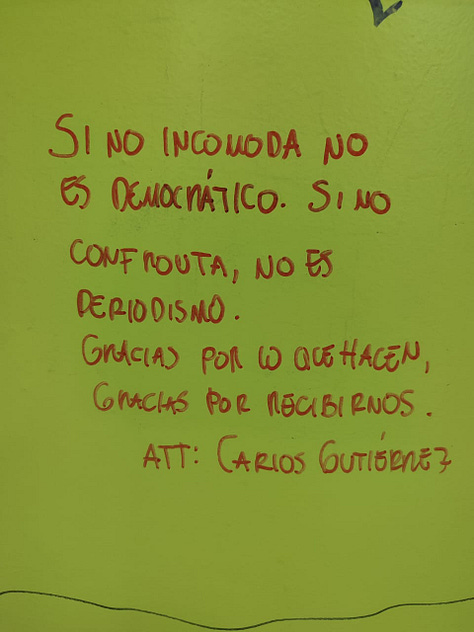 SI NO INCOMODA NO
ES DEMOCRÁTICO. SI NO
CONFRONTA, NO ES
PERIODISMO.
GRACIAS POR LO QUE HACEN,
GRACIAS POR RECIBIRNOS.
ATT: CARLOS GUTIÉRREZ